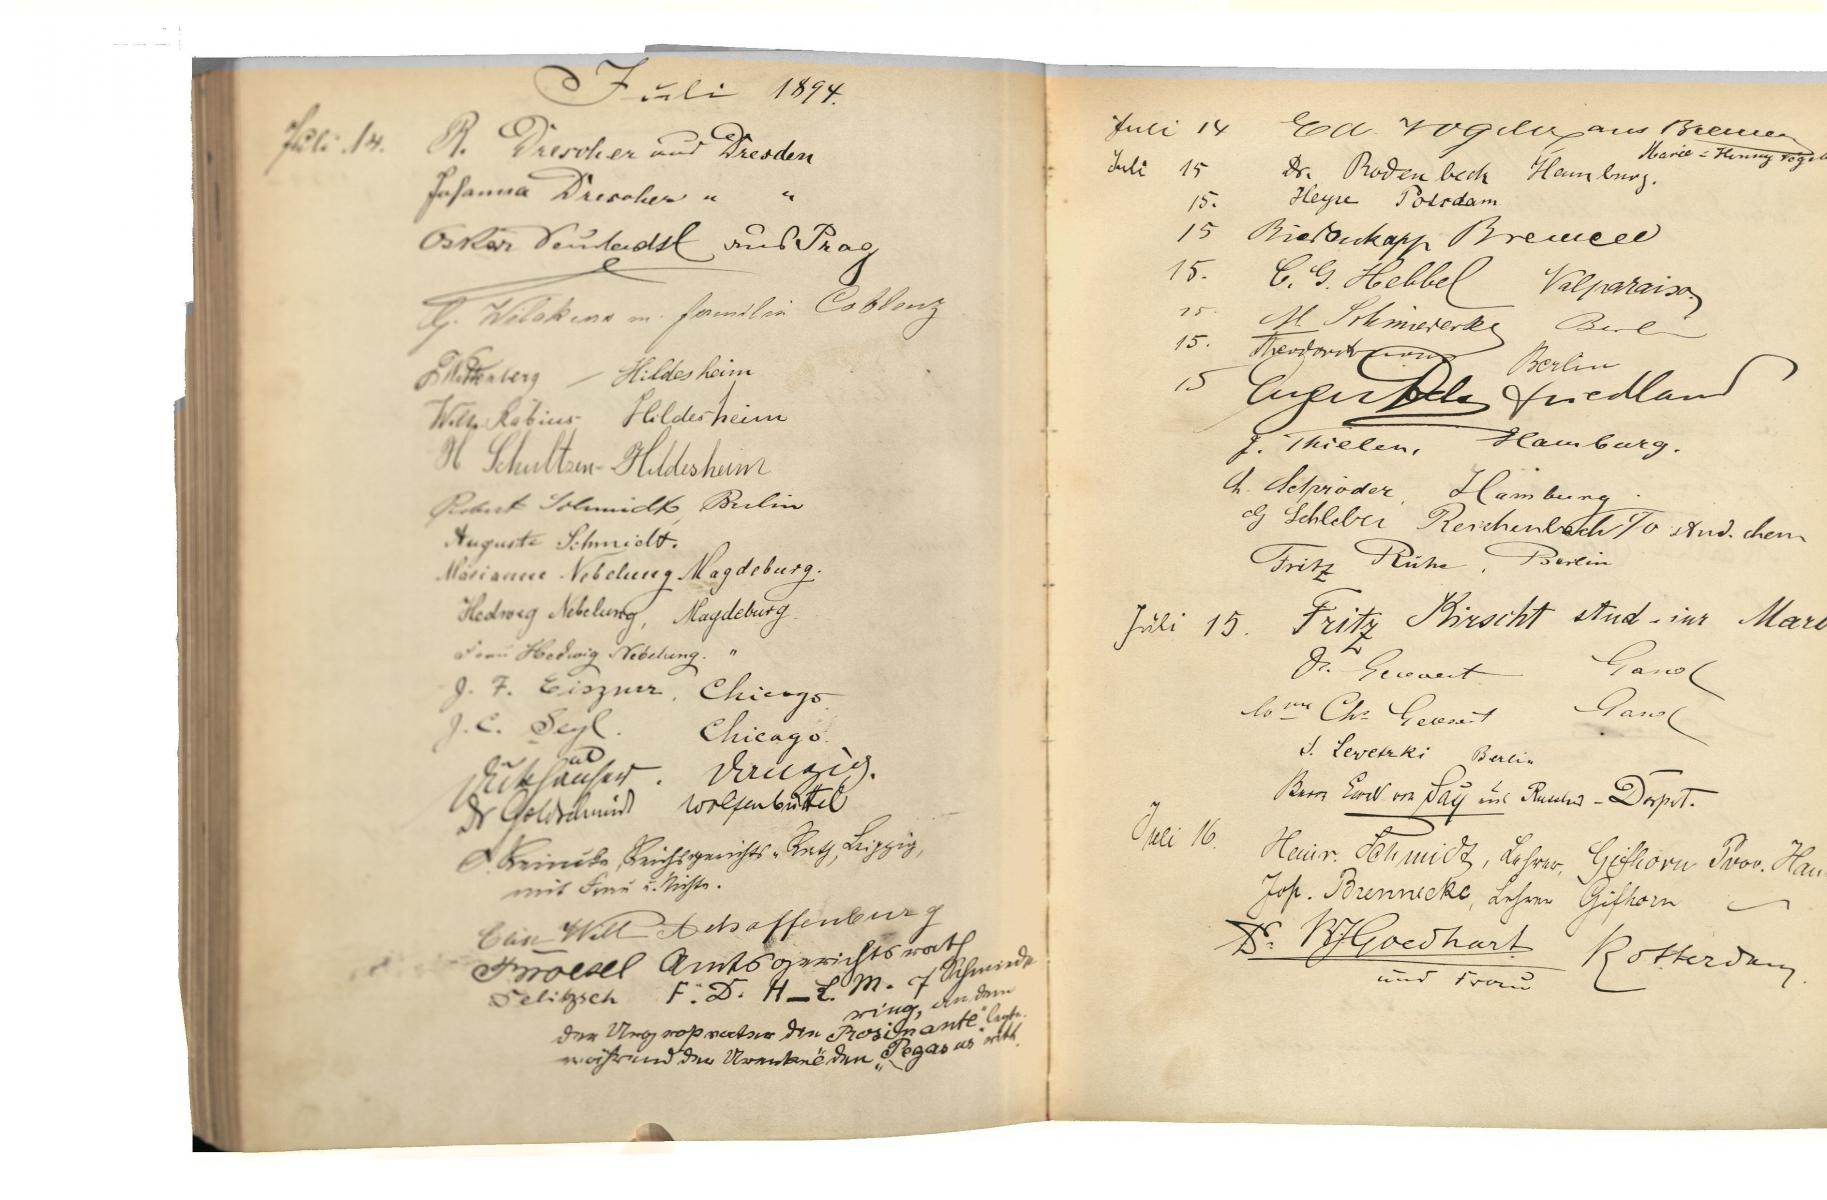 Juli 1894.
Juli 14. R. Drescher aus Dresden
Johanna Drescher " "
Oskar aus Prag
G. Wilskens m. Familie Coblenz
Hildesheim
Wilh. Rabius Hildesheim
H Schultzen - Hildesheim
Robert Schmidt, Berlin
Auguste Schmidt.
Marianne Nebelung Magdeburg.
Hedwig Nebelung, Magdeburg.
Frau Hedwig Nebelung. "
J. F. Eiszner, Chicago
J. C. Segl. Chicago.
Danzig.
Dr Goldschmidt Wolfenbüttel
Reichsgerichts-Rath, Leipzig,
mit Frau u. Nichte.
Elise Will Aschaffenburg
Amtsgerichtsrath
Delitzsch F. D. H-L. M. Schmiede
ring, an dem
der Urgrossvater den "Rosinante" legte.
während der Urenkel den "Pegasus" ritt.
Juli 14 Ed. Vogeler aus Bremen
Marie - Henny
Juli 15 Dr. Rodenbeck Hamburg.
15. Heyse Potsdam
15 Biedenkapp Bremen
15. C. G. Hebbel Valparaiso
15. M Berlin
15. Berlin
15 August Friedland
J. Thielen, Hamburg.
A. Schröder, Hamburg.
G Schleber Reichenbach i/V stud. chem
Fritz Rühe, Berlin
Juli 15. Fritz Kirscht stud. iur
Gevaert Gand
Chs Gevaert Gand
S. Lewetzki Berlin
Baron von aus Russland - Dorpat.
Juli 16. Heinr. Schmidt, Lehrer, Gifhorn Prov. Han
Jos. Brennecke, Lehrer Gifhorn
Dr. WJ Goedhart Rotterdam.
und Frau